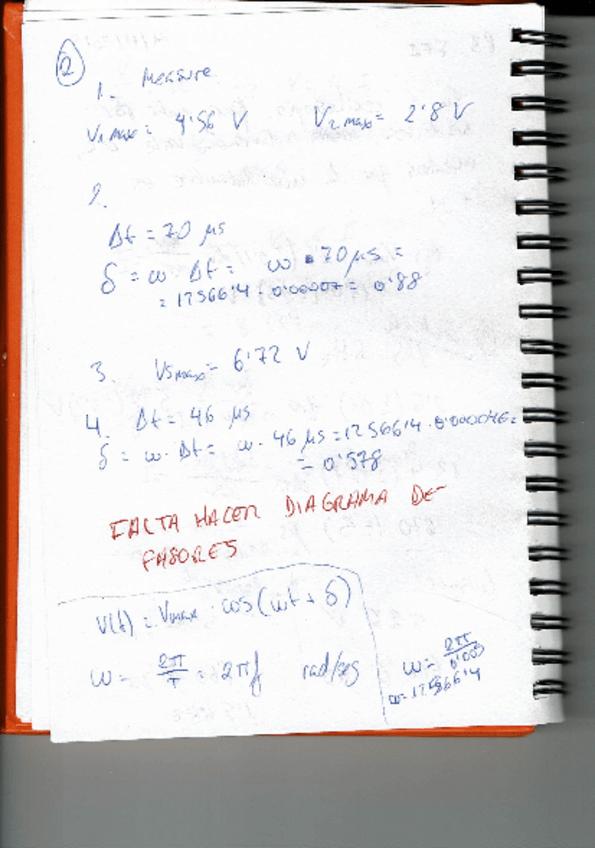 2
1.- Measure
V1 max = 4'56 V V2 max = 2'8 V
2.
Δt = 70 μs
δ = ω · Δt = ω · 70 μs =
= 12566'4 · 0'00007 = 0'88
3. VSmax = 6'72 V
4. Δt = 46 μs
δ = ω · Δt = ω · 46 μs = 12566'4 · 0'000046 =
= 0'578
FALTA HACER DIAGRAMA DE
FASORES
V(t) = Vmax · cos(ωt + δ)
ω = 2π/T = 2πf rad/seg
ω = 2π/
ω = 12566'4